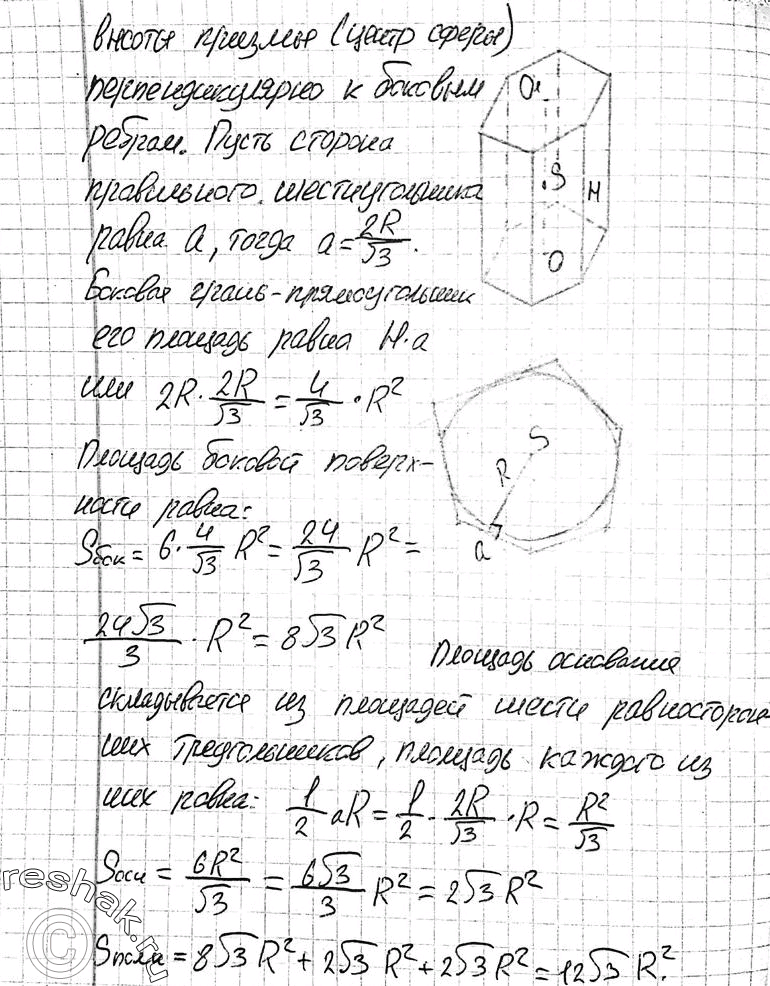 высоты призмы (центр сферы)
перпендикулярно к боковым
ребрам. Пусть сторона
правильного шестиугольника
равна a, тогда a = 2R/√3.
Боковая грань - прямоугольник
его площадь равна H·a
или 2R · 2R/√3 = 4/√3 · R²
Площадь боковой поверх-
ности равна:
Sбок = 6 · 4/√3 R² = 24/√3 R² =
24√3/3 · R² = 8√3 R²
Площадь основания
складывается из площадей шести равносторон-
них треугольников, площадь каждого из
них равна: 1/2 aR = 1/2 · 2R/√3 · R = R²/√3
Sосн = 6R²/√3 = 6√3/3 R² = 2√3 R²
Sполн = 8√3 R² + 2√3 R² + 2√3 R² = 12√3 R².
O¹
S
H
O
S
R
a
reshak.ru
©